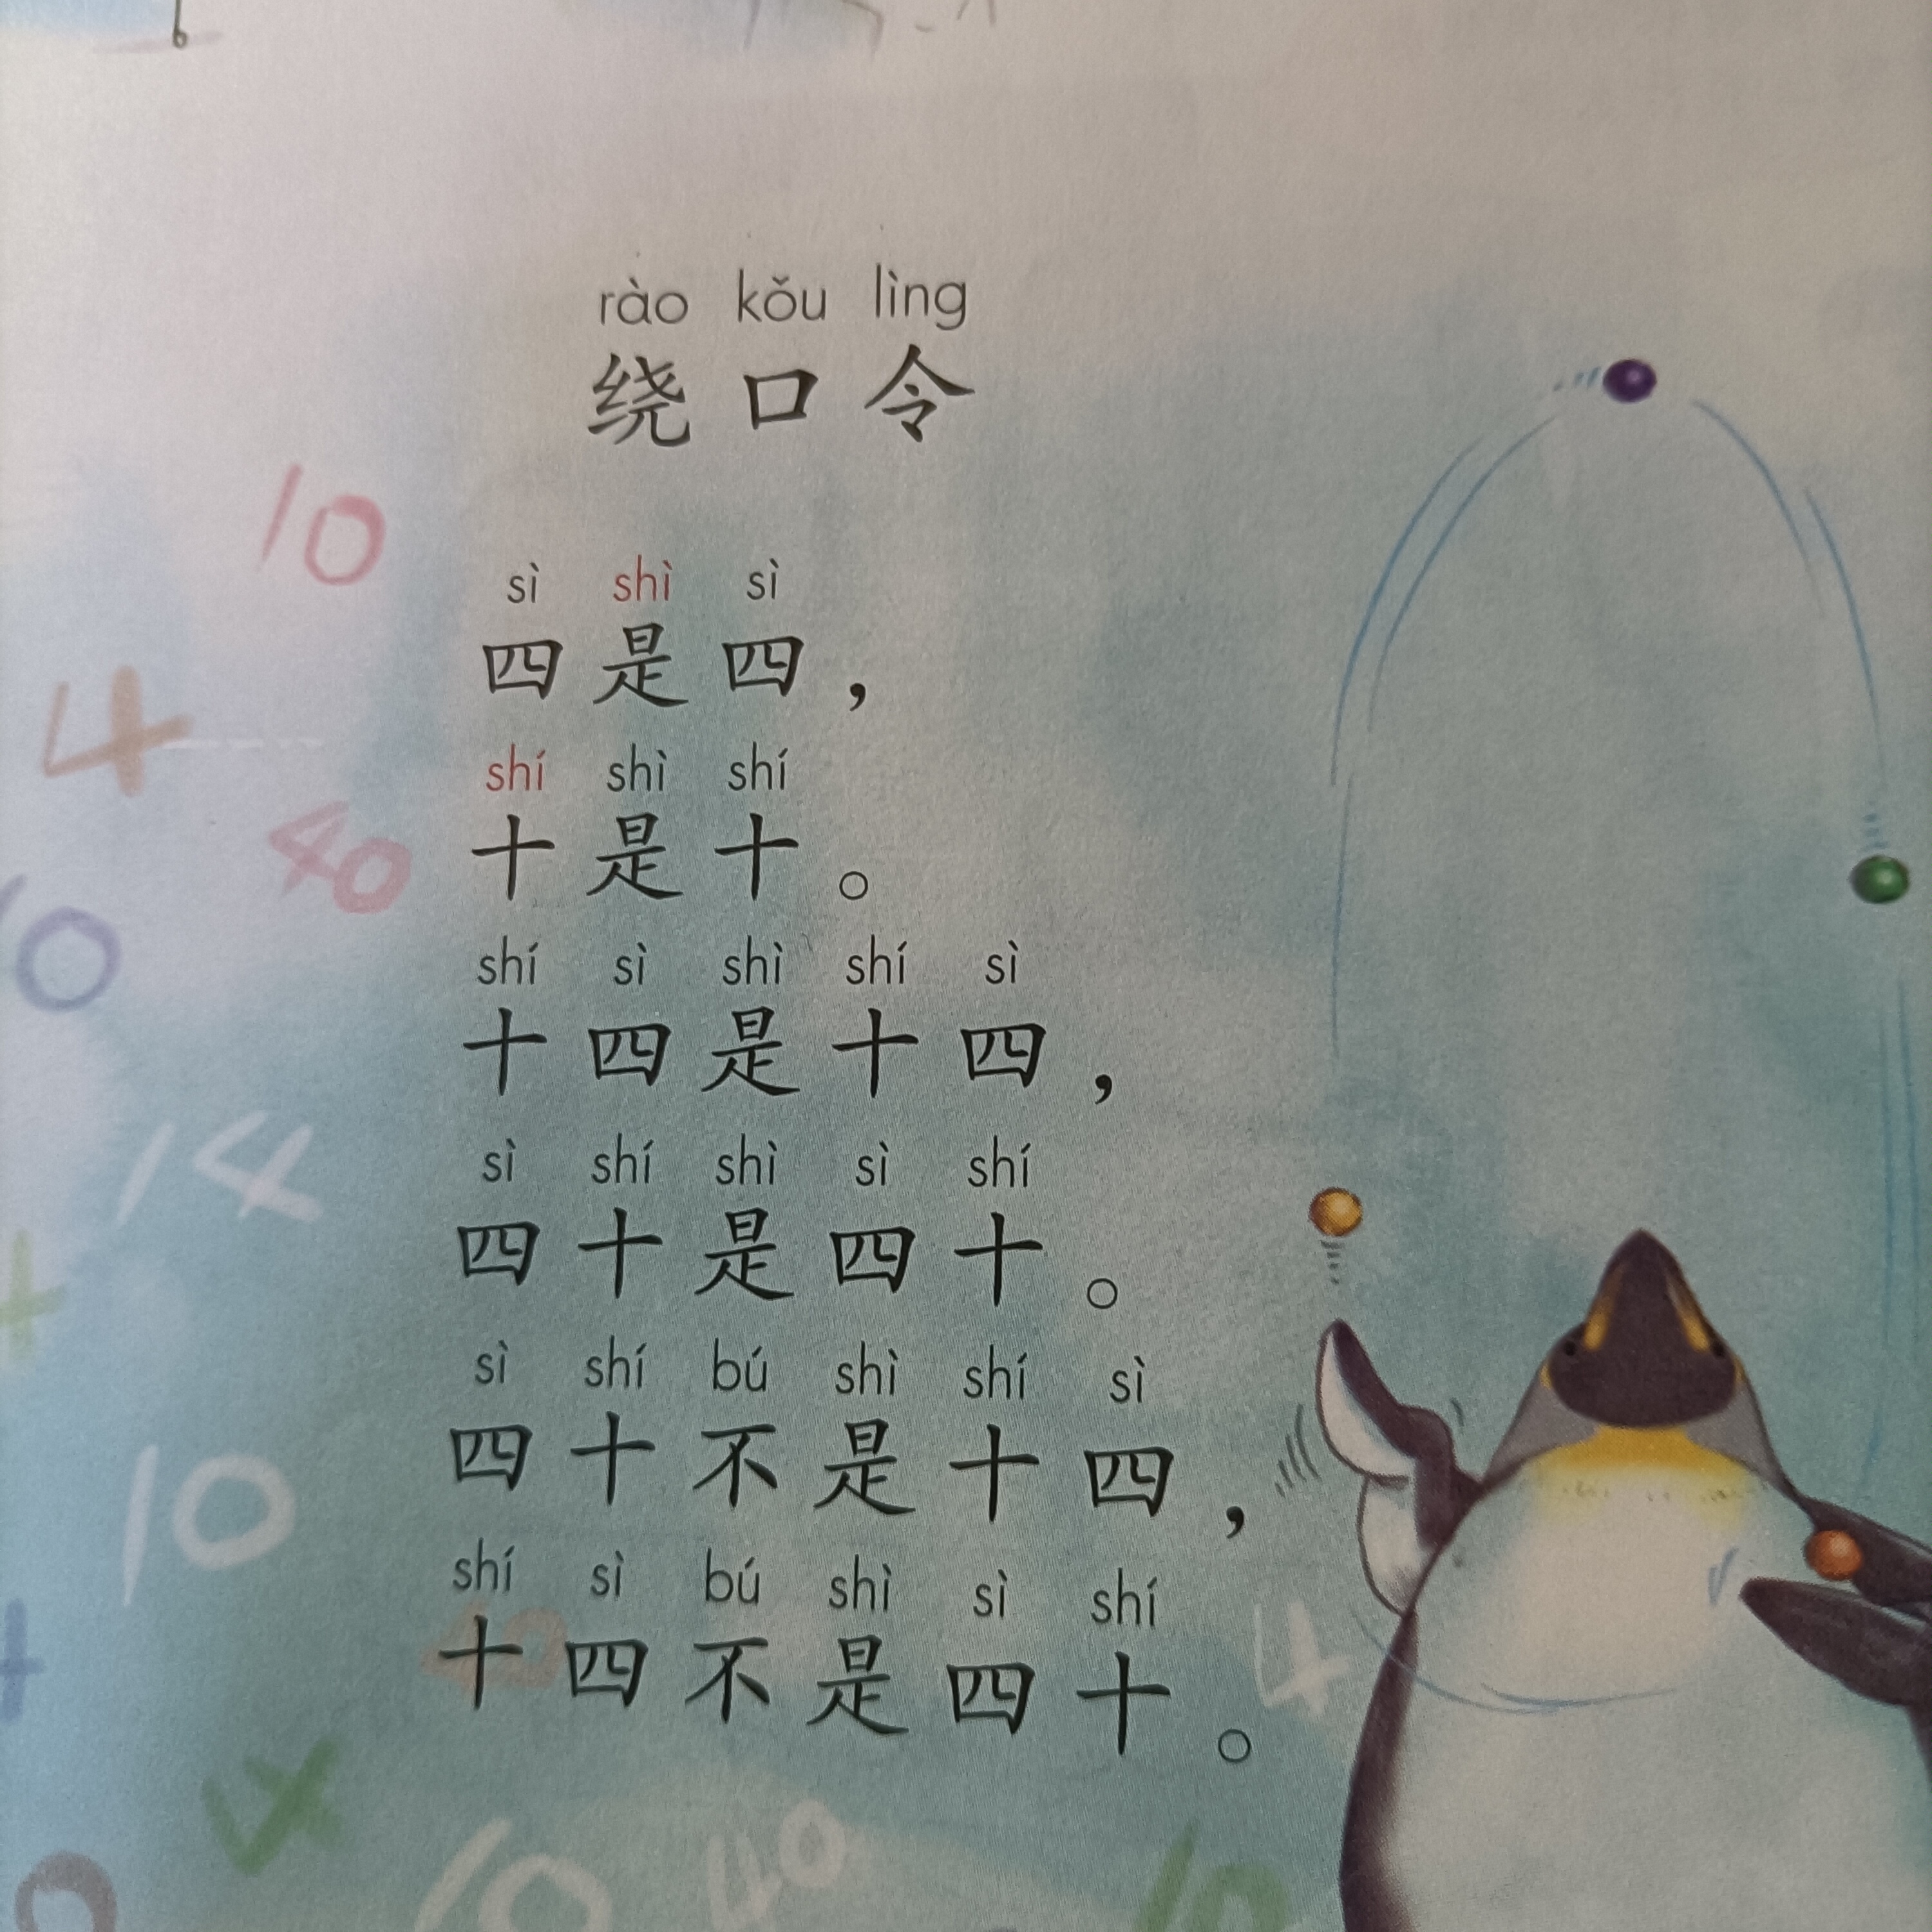 rào kǒu lìng
绕口令
sì shì sì
四是四，
shí shì shí
十是十。
shí sì shì shí sì
十四是十四，
sì shí shì sì shí
四十是四十。
sì shí bú shì shí sì
四十不是十四，
shí sì bú shì sì shí
十四不是四十。
10
4
40
0
14
4
10
4
40
4
4
0
10
40
10